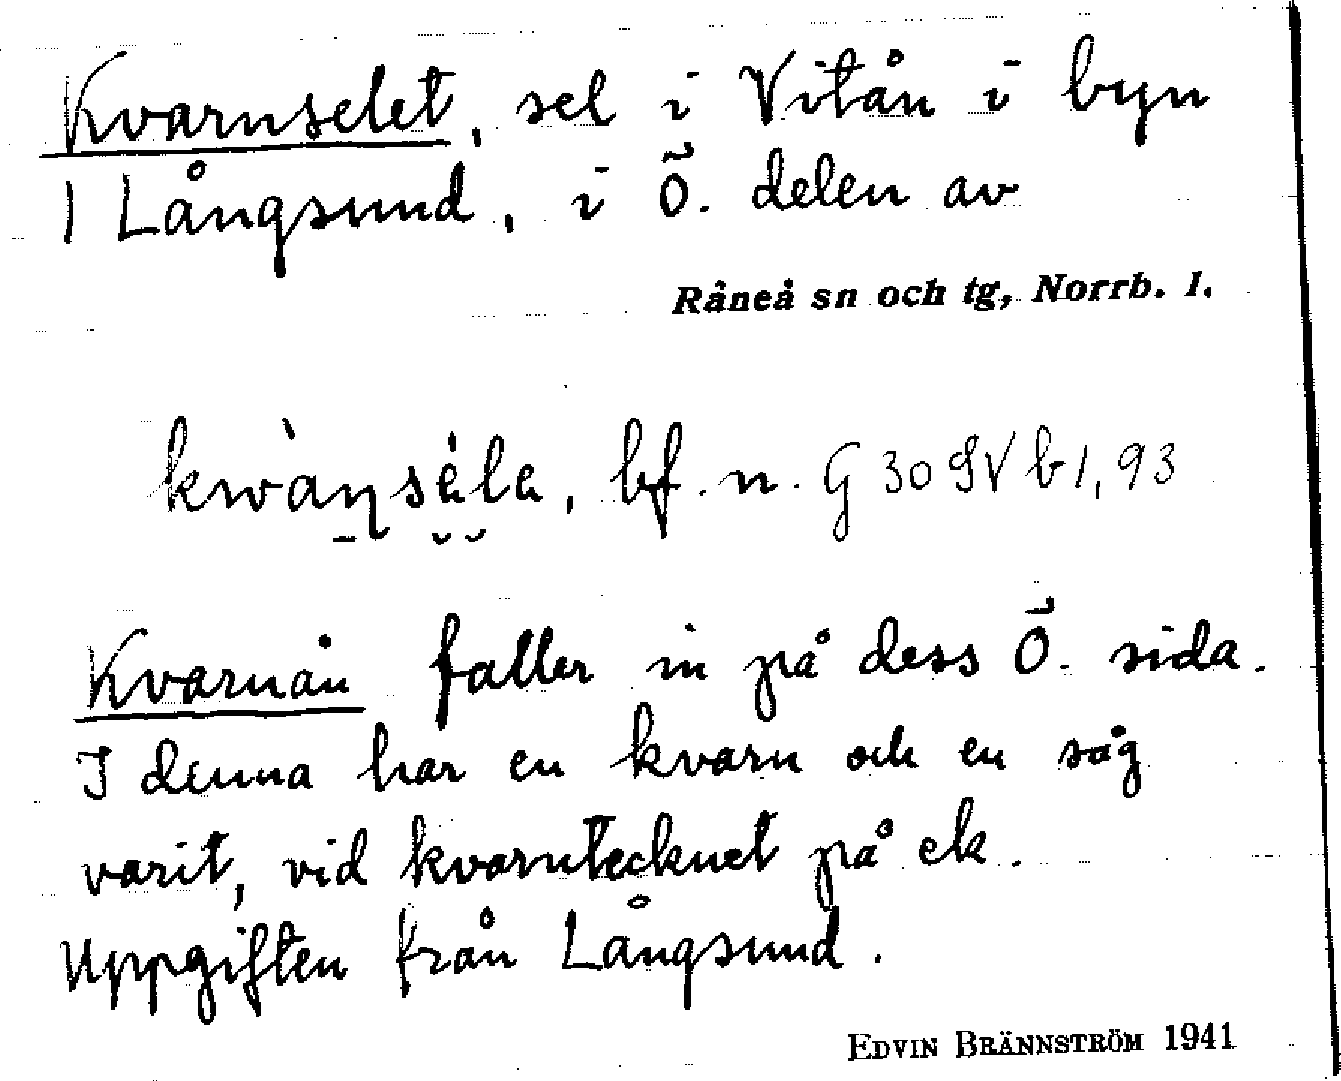 Kvarnselet, sel i Vitån i byn
1 Långsund, i Ö. delen av
Råneå sn och tg, Norrb. l.
kwàṇsèle, bf. n. G 30 SV b1, 93
Kvarnån faller in på dess Ö. sida.
I denna har en kvarn och en såg
varit, vid kvarntecknet på ek.
Uppgiften från Långsund.
EDVIN BRÄNNSTRÖM 1941